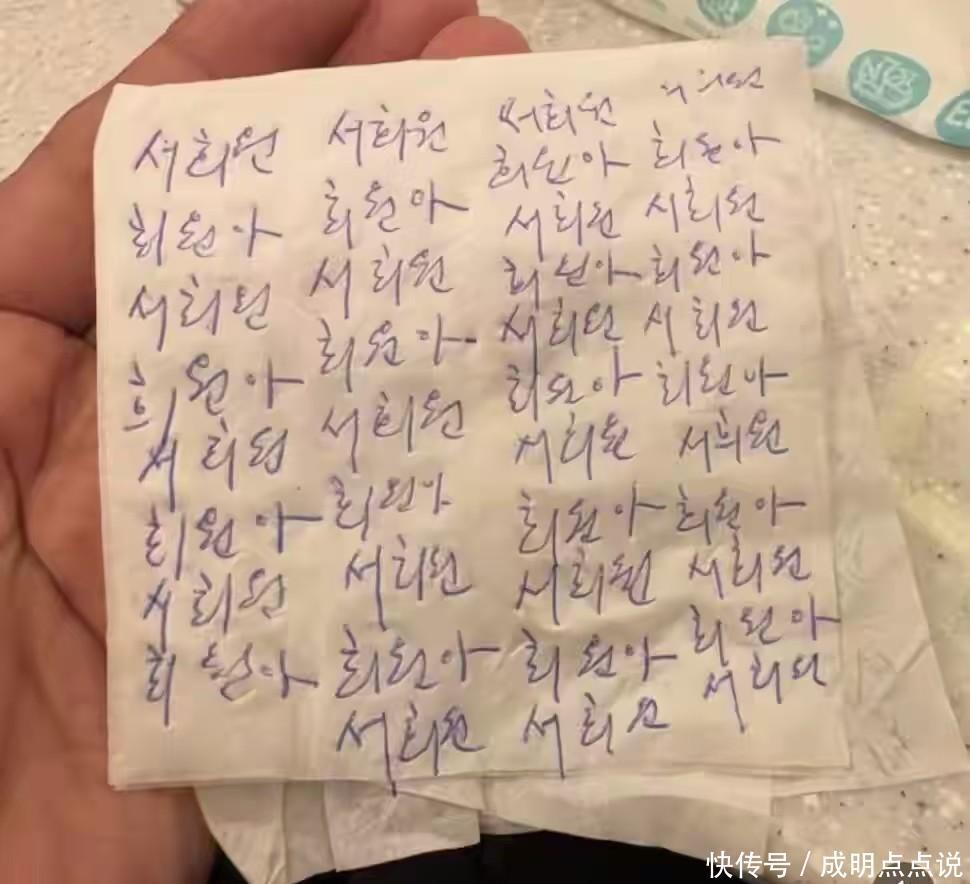 서희원
희원아
서희원
희원아
서희원
희원아
서희원
희원아
서희원
희원아
서희원
희원아
서희원
희원아
서희원
희원아
서희원
서희원
희원아
서희원
희원아
서희원
희원아
서희원
희원아
서희원
희원아
서희원
서희원
희원아
서희원
희원아
서희원
희원아
서희원
희원아
서희원
희원아
서희원
快传号 / 成明点点说